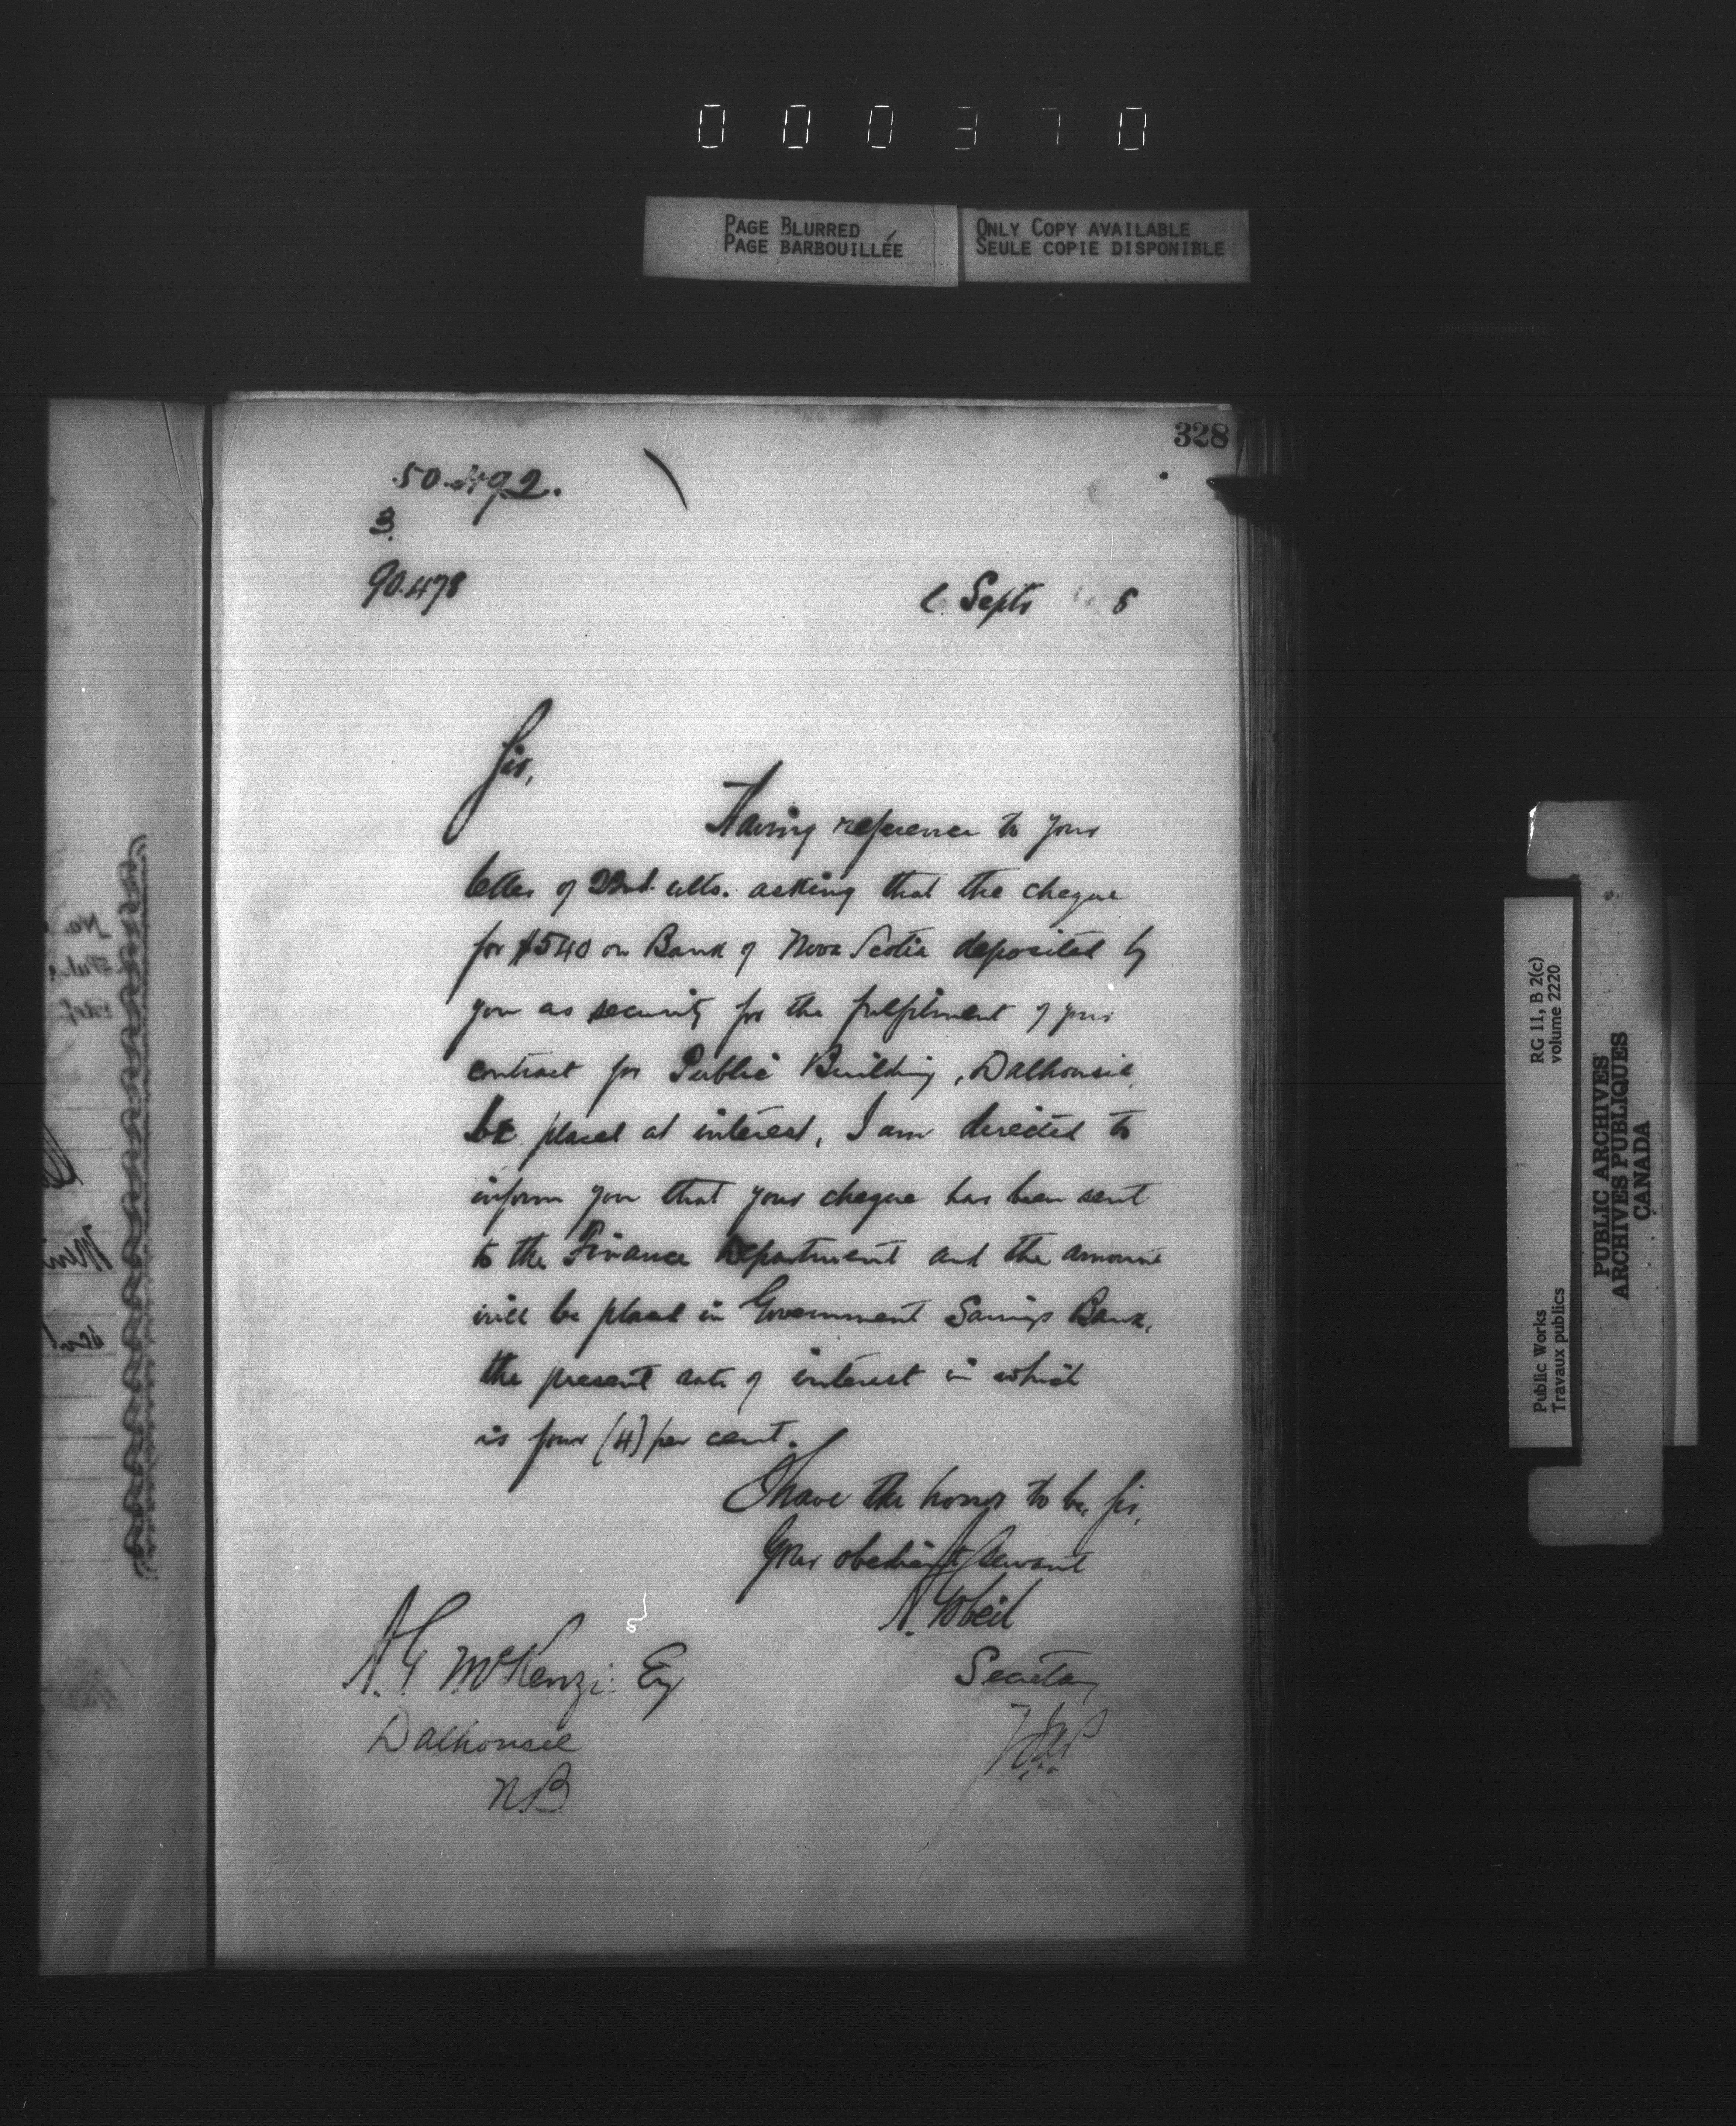 000370
PAGE BLURRED
PAGE BARBOUILLÉE
ONLY COPY AVAILABLE
SEULE COPIE DISPONIBLE
328
50.492.
3.
90.478
Septr 8
Sir,
Having reference to your
letter of 22nd. ulto. asking that the cheque
for $540 on Bank of Nova Scotia deposited by
you as security for the fulfilment of your
contract for Public Building, Dalhousie,
be placed at interest, I am directed to
inform you that your cheque has been sent
to the Finance Department and the amount
will be placed in Government Savings Bank,
the present rate of interest in which
is four (4) per cent.
I have the honor to be, Sir,
Your obedient Servant
A. Gobeil
Secretary
A. G. McKenzie Esq
Dalhousie
NB
RG 11, B 2(c)
volume 2220
Public Works
Travaux publics
PUBLIC ARCHIVES
ARCHIVES PUBLIQUES
CANADA